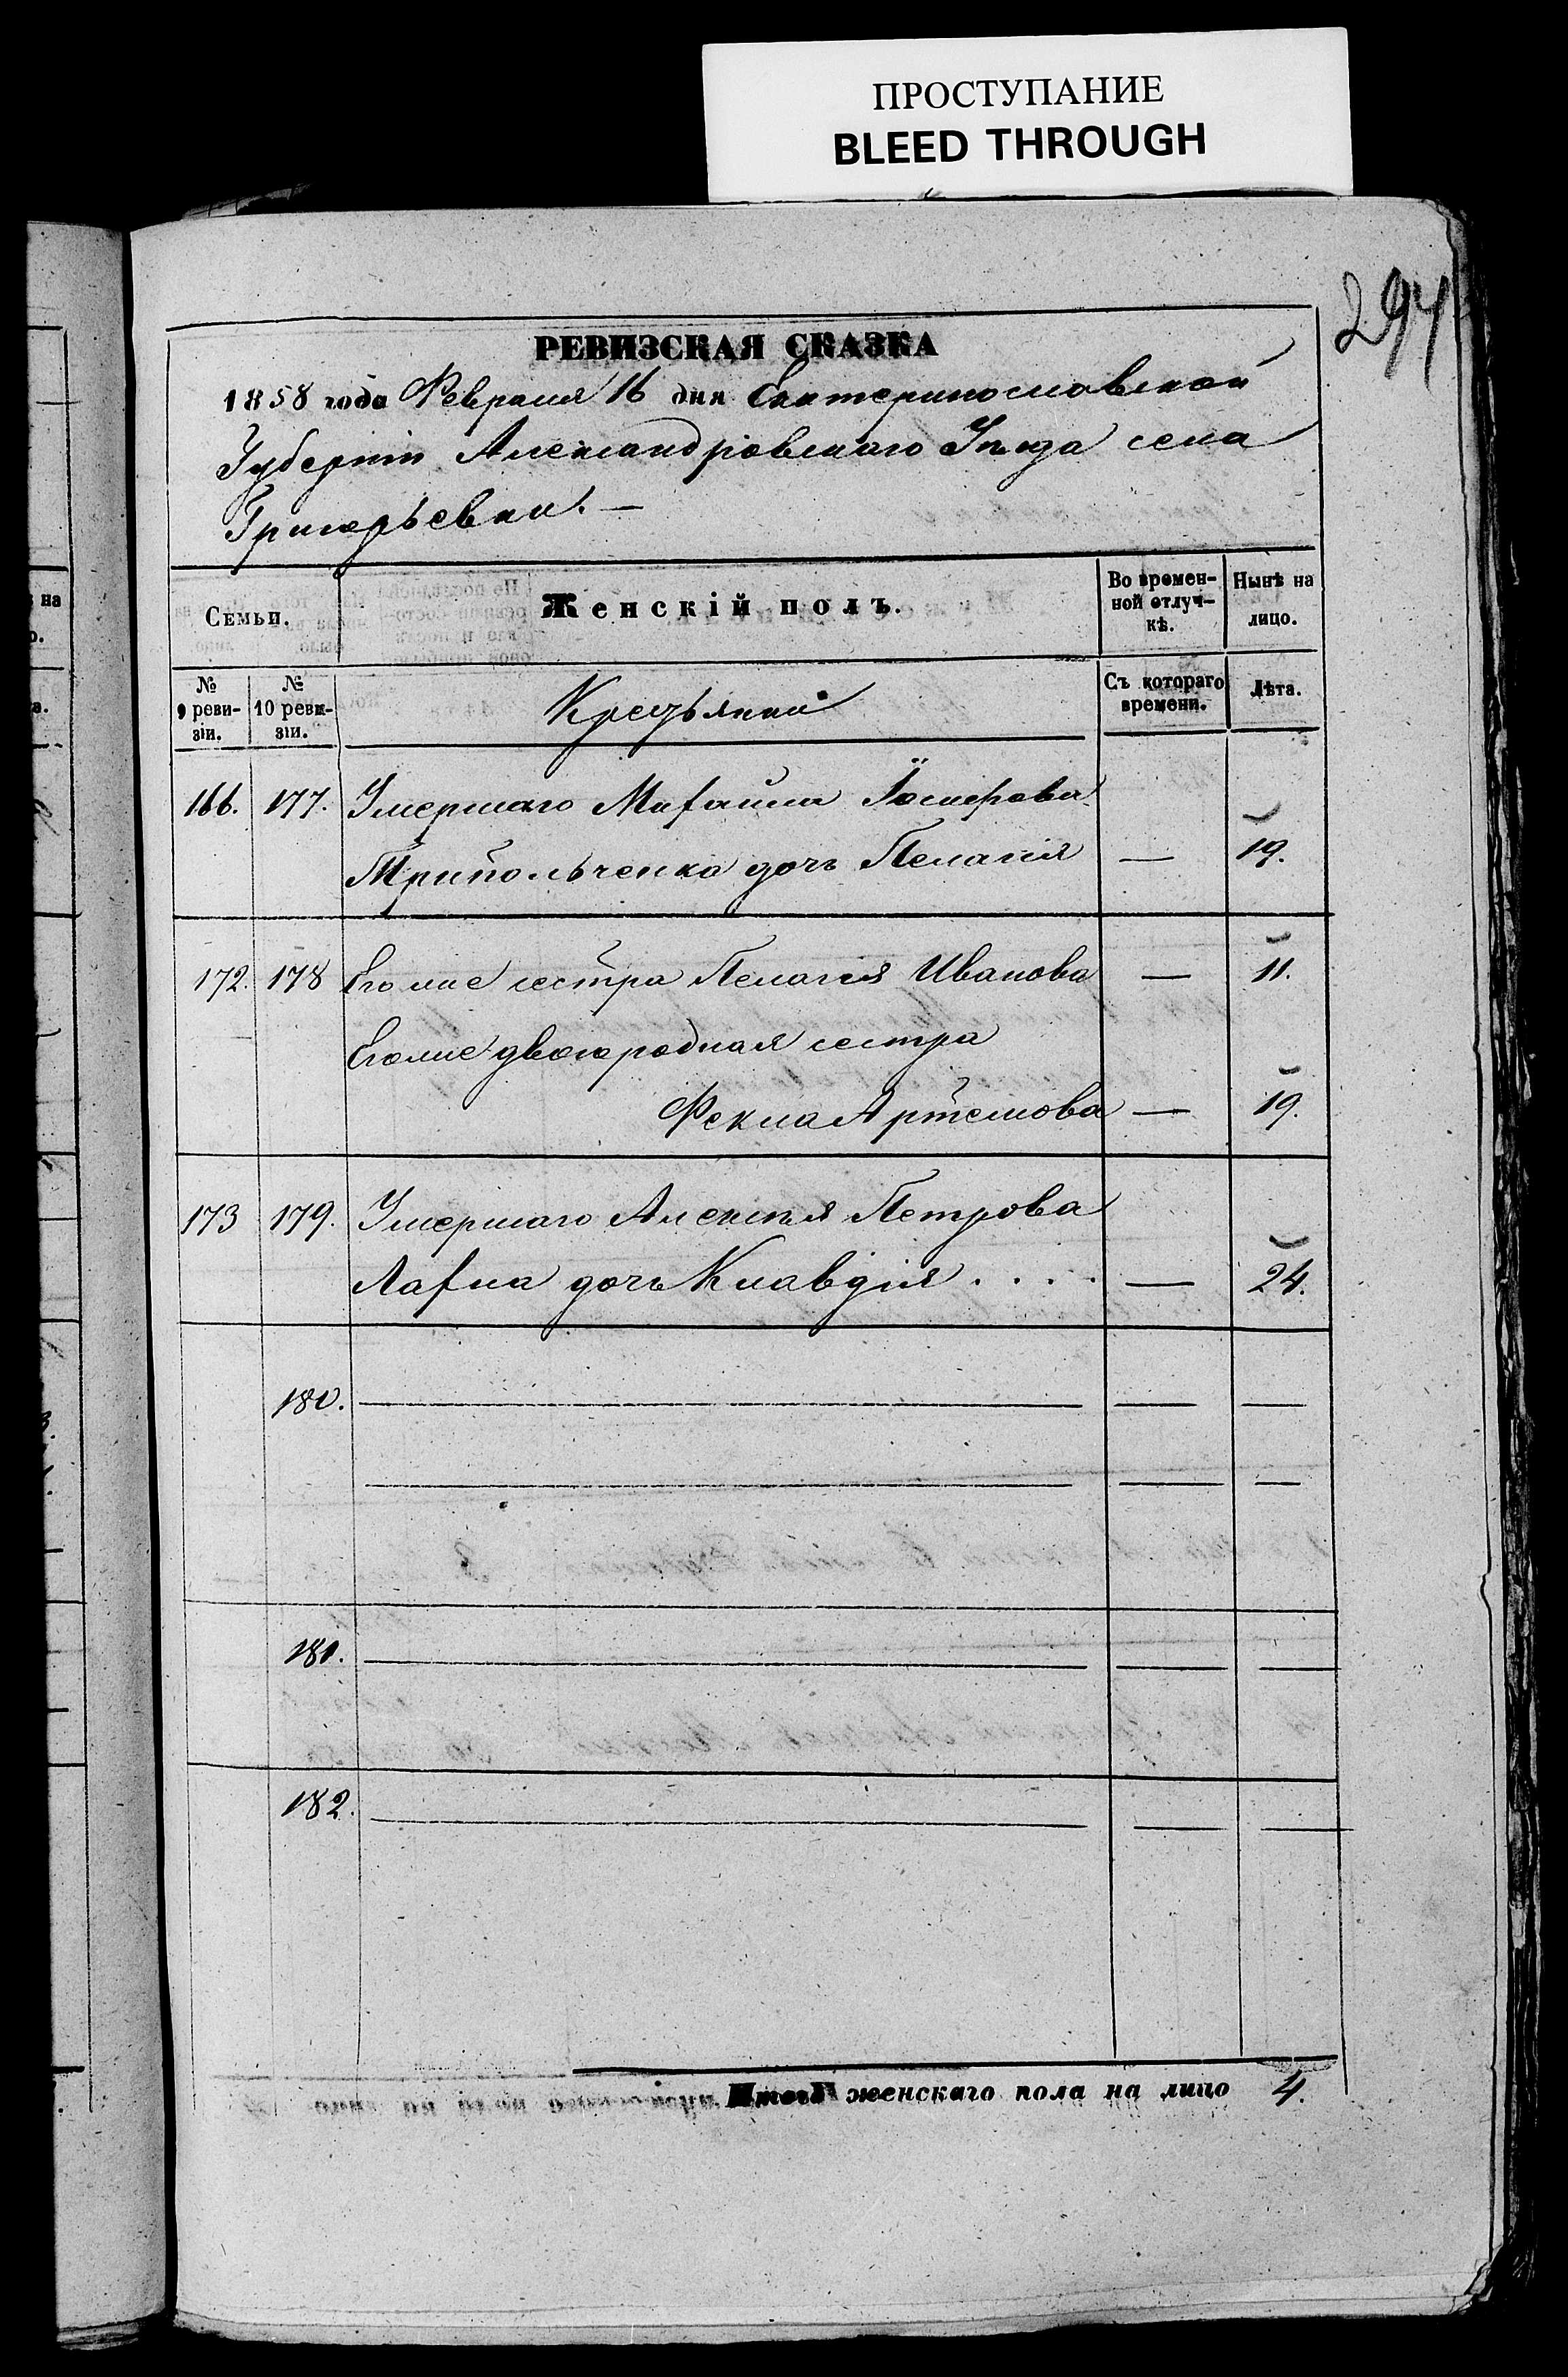 ПРОСТУПАНИЕ
BLEED THROUGH
294
РЕВИЗСКАЯ СКАЗКА
1858 года Февраля 16 дня Екатеринославской
Губерніи Александровскаго Уѣзда села
Григорьевки. —
Семьи.
Женскій полъ.
Во времен-
ной отлуч-
кѣ.
Нынѣ на
лицо.
№
9 реви-
зіи.
№
10 реви-
зіи.
Съ котораго
времени.
Лѣта.
166. 177. Умершаго Михайла
Трипольченка дочь Пелагія — 19.
172. 178 Его же сестра Пелагея Иванова — 11.
Его же двоюродная сестра
Фекла Артемова — 19.
173 179. Умершаго Алексѣя Петрова
дочь Клавдія . . . . — 24.
180. — — —
— — —
181. — — —
182. — — —
Итогъ женскаго пола на лицо 4.